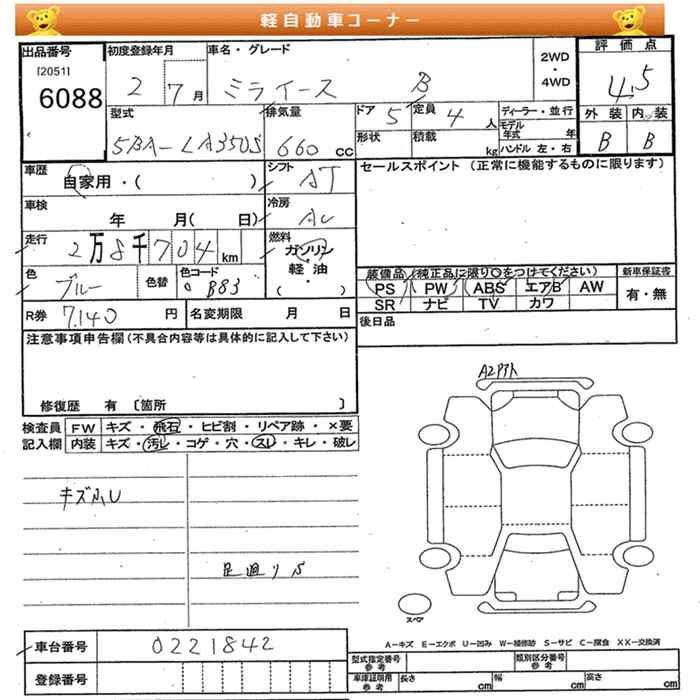 軽自動車コーナー
出品番号
[2051]
6088
初度登録年月
2 7月
車名・グレード
ミライース B
2WD・4WD
評価点
4.5
型式
5BA-LA350S
排気量
660cc
ドア 5
定員 4人
形状
積載 kg
ディーラー・並行
モデル年式 年
ハンドル 左・右
外装 内装
B B
車歴
自家用・( )
シフト
AT
セールスポイント (正常に機能するものに限ります)
車検
年 月( 日)
冷房
AC
走行
2万8千704km
燃料
ガソリン
軽・油
( ・ )
色
ブルー
色替
色コード
B83
装備品(純正品に限り○をつけてください)
PS PW ABS エアB AW
SR ナビ TV カワ
新車保証書
有・無
R券 7.140円
名変期限 月 日
後日品
注意事項申告欄(不具合内容等は具体的に記入して下さい)
修復歴 有〔箇所 〕
検査員記入欄
FW キズ・飛石・ヒビ割・リペア跡・×要
内装 キズ・汚レ・コゲ・穴・スレ・キレ・破レ
キズ小U
足廻りS
スペア
A-キズ E-エクボ U-凹み W-補修跡 S-サビ C-腐食 XX-交換済
車台番号 0221842
登録番号
型式指定番号参考
類別区分番号参考
車庫証明用参考
長さ cm
幅 cm
高さ cm